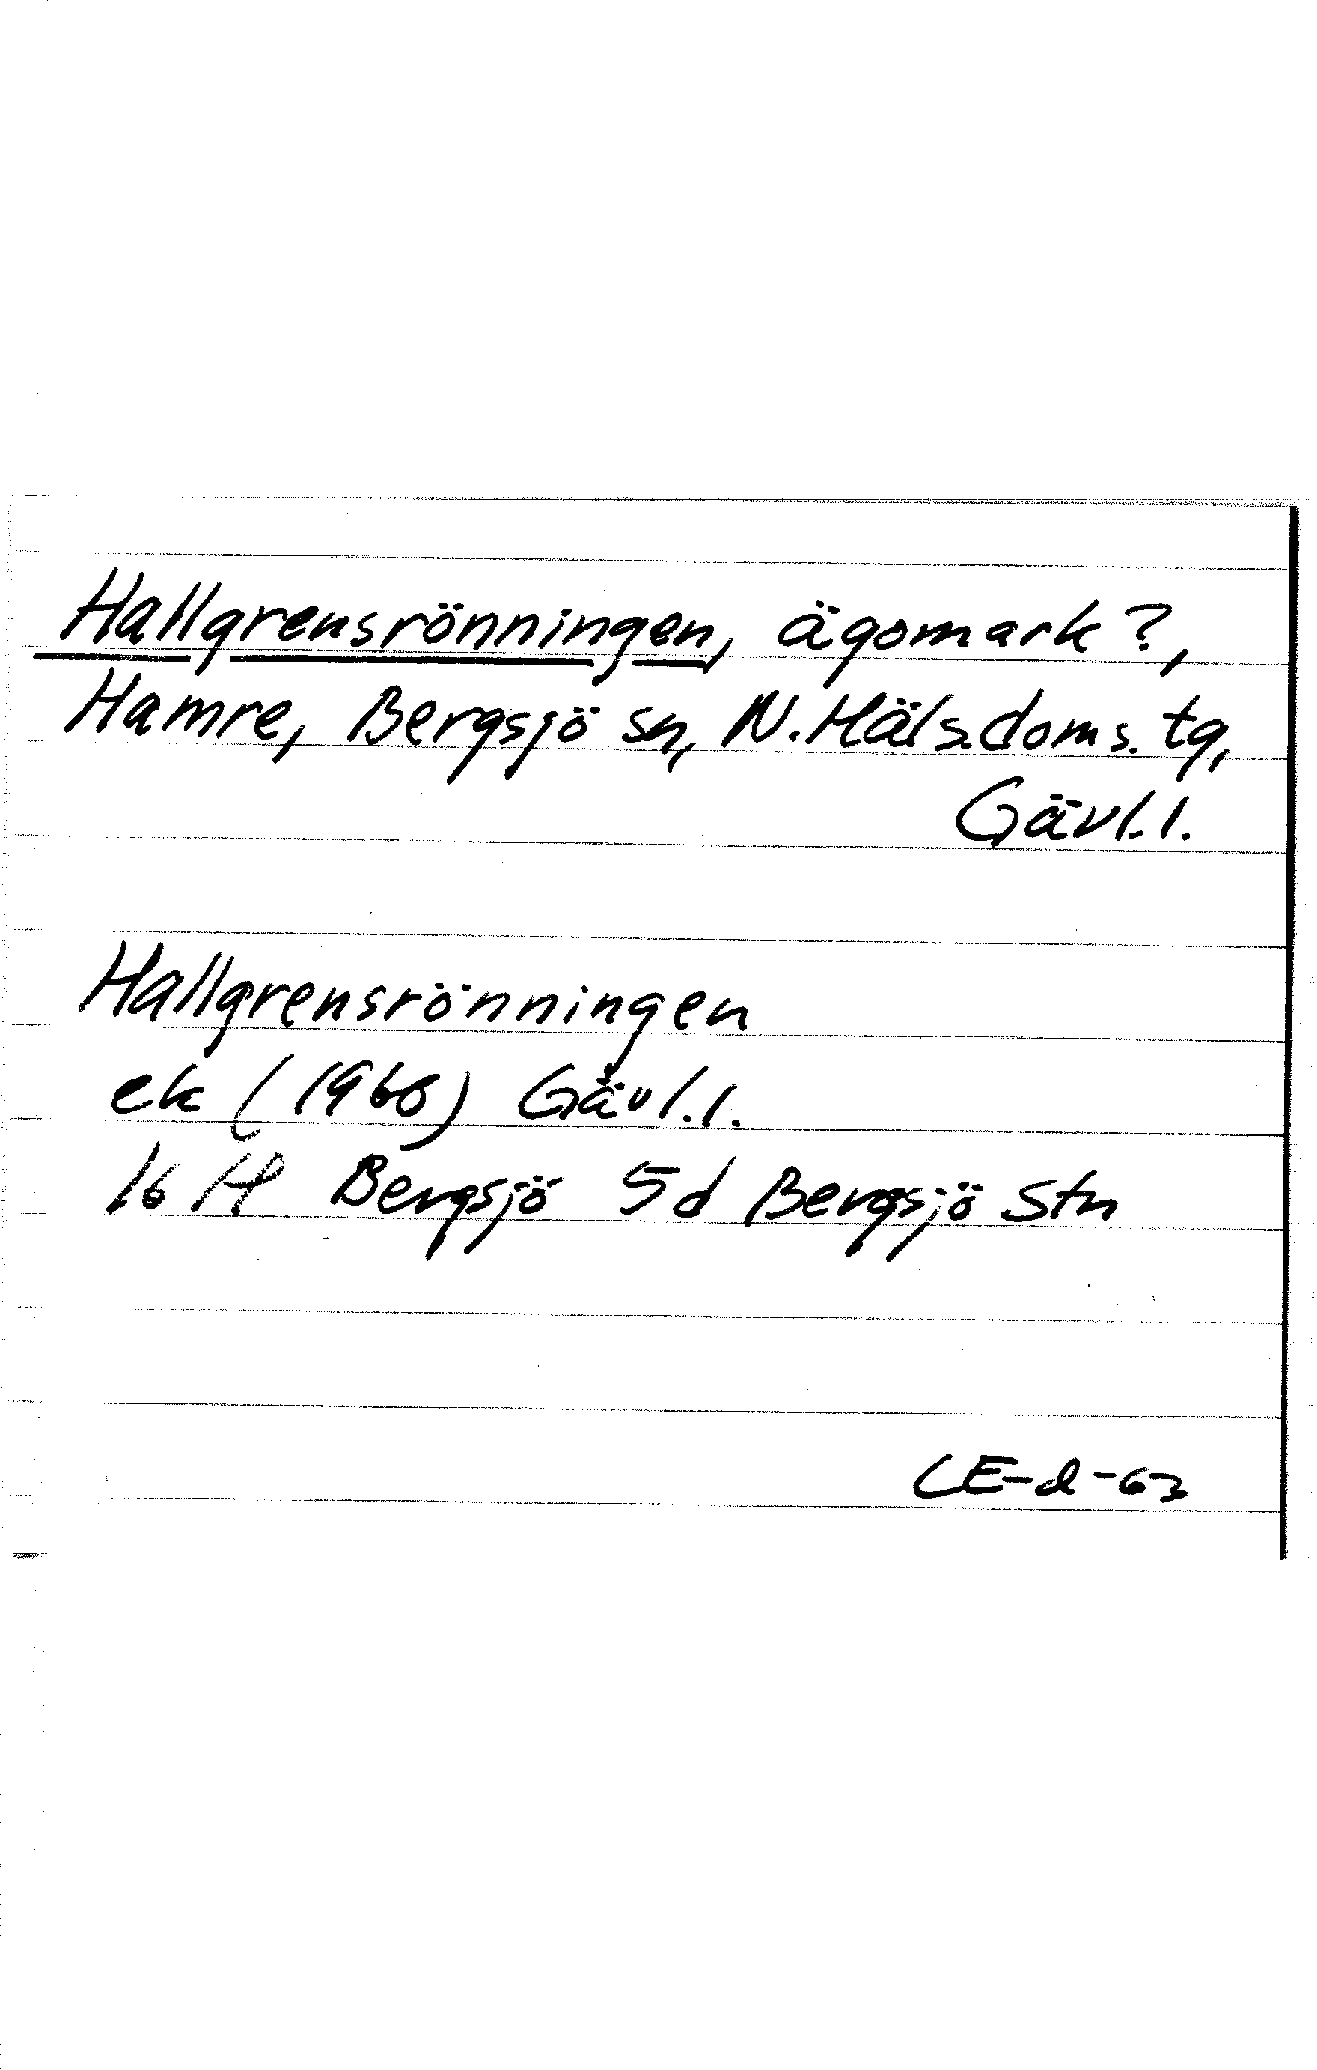 Hallgrensrönningen, ägomark?,
Hamre, Bergsjö sn, N. Häls. doms. tg,
Gävl. l.
Hallgrensrönningen
ek (1960) Gävl. l.
16 H Bergsjö 5d Bergsjö Stn
CE-d-63